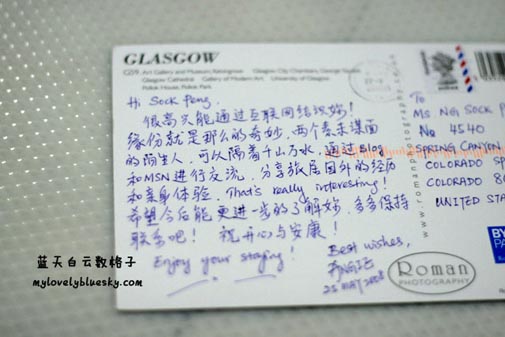 GLASGOW
G59 Art Gallery and Museum, Kelvingrove Glasgow City Chambers, George Square
Glasgow Cathedral Gallery of Modern Art University of Glasgow
Pollok House, Pollok Park
Hi Sock Peng,
很高兴能通过互联网结识妳!
缘份就是那么的奇妙,两个素未谋面
的陌生人,可以隔着千山万水,通过Blog
和MSN进行交流,分享旅居国外的经历
和亲身体验。That's really interesting!
希望今后能更进一步的了解妳,多多保持
联系吧! 祝开心与安康!
Enjoy your staying!
Best wishes,
25 MAY 2008
To
MS. NG SOCK P
No 4540
SPRING CANYON
COLORADO SP
COLORADO 80
UNITED STA
BY
PA
Roman
PHOTOGRAPHY
蓝天白云数格子
mylovelybluesky.com